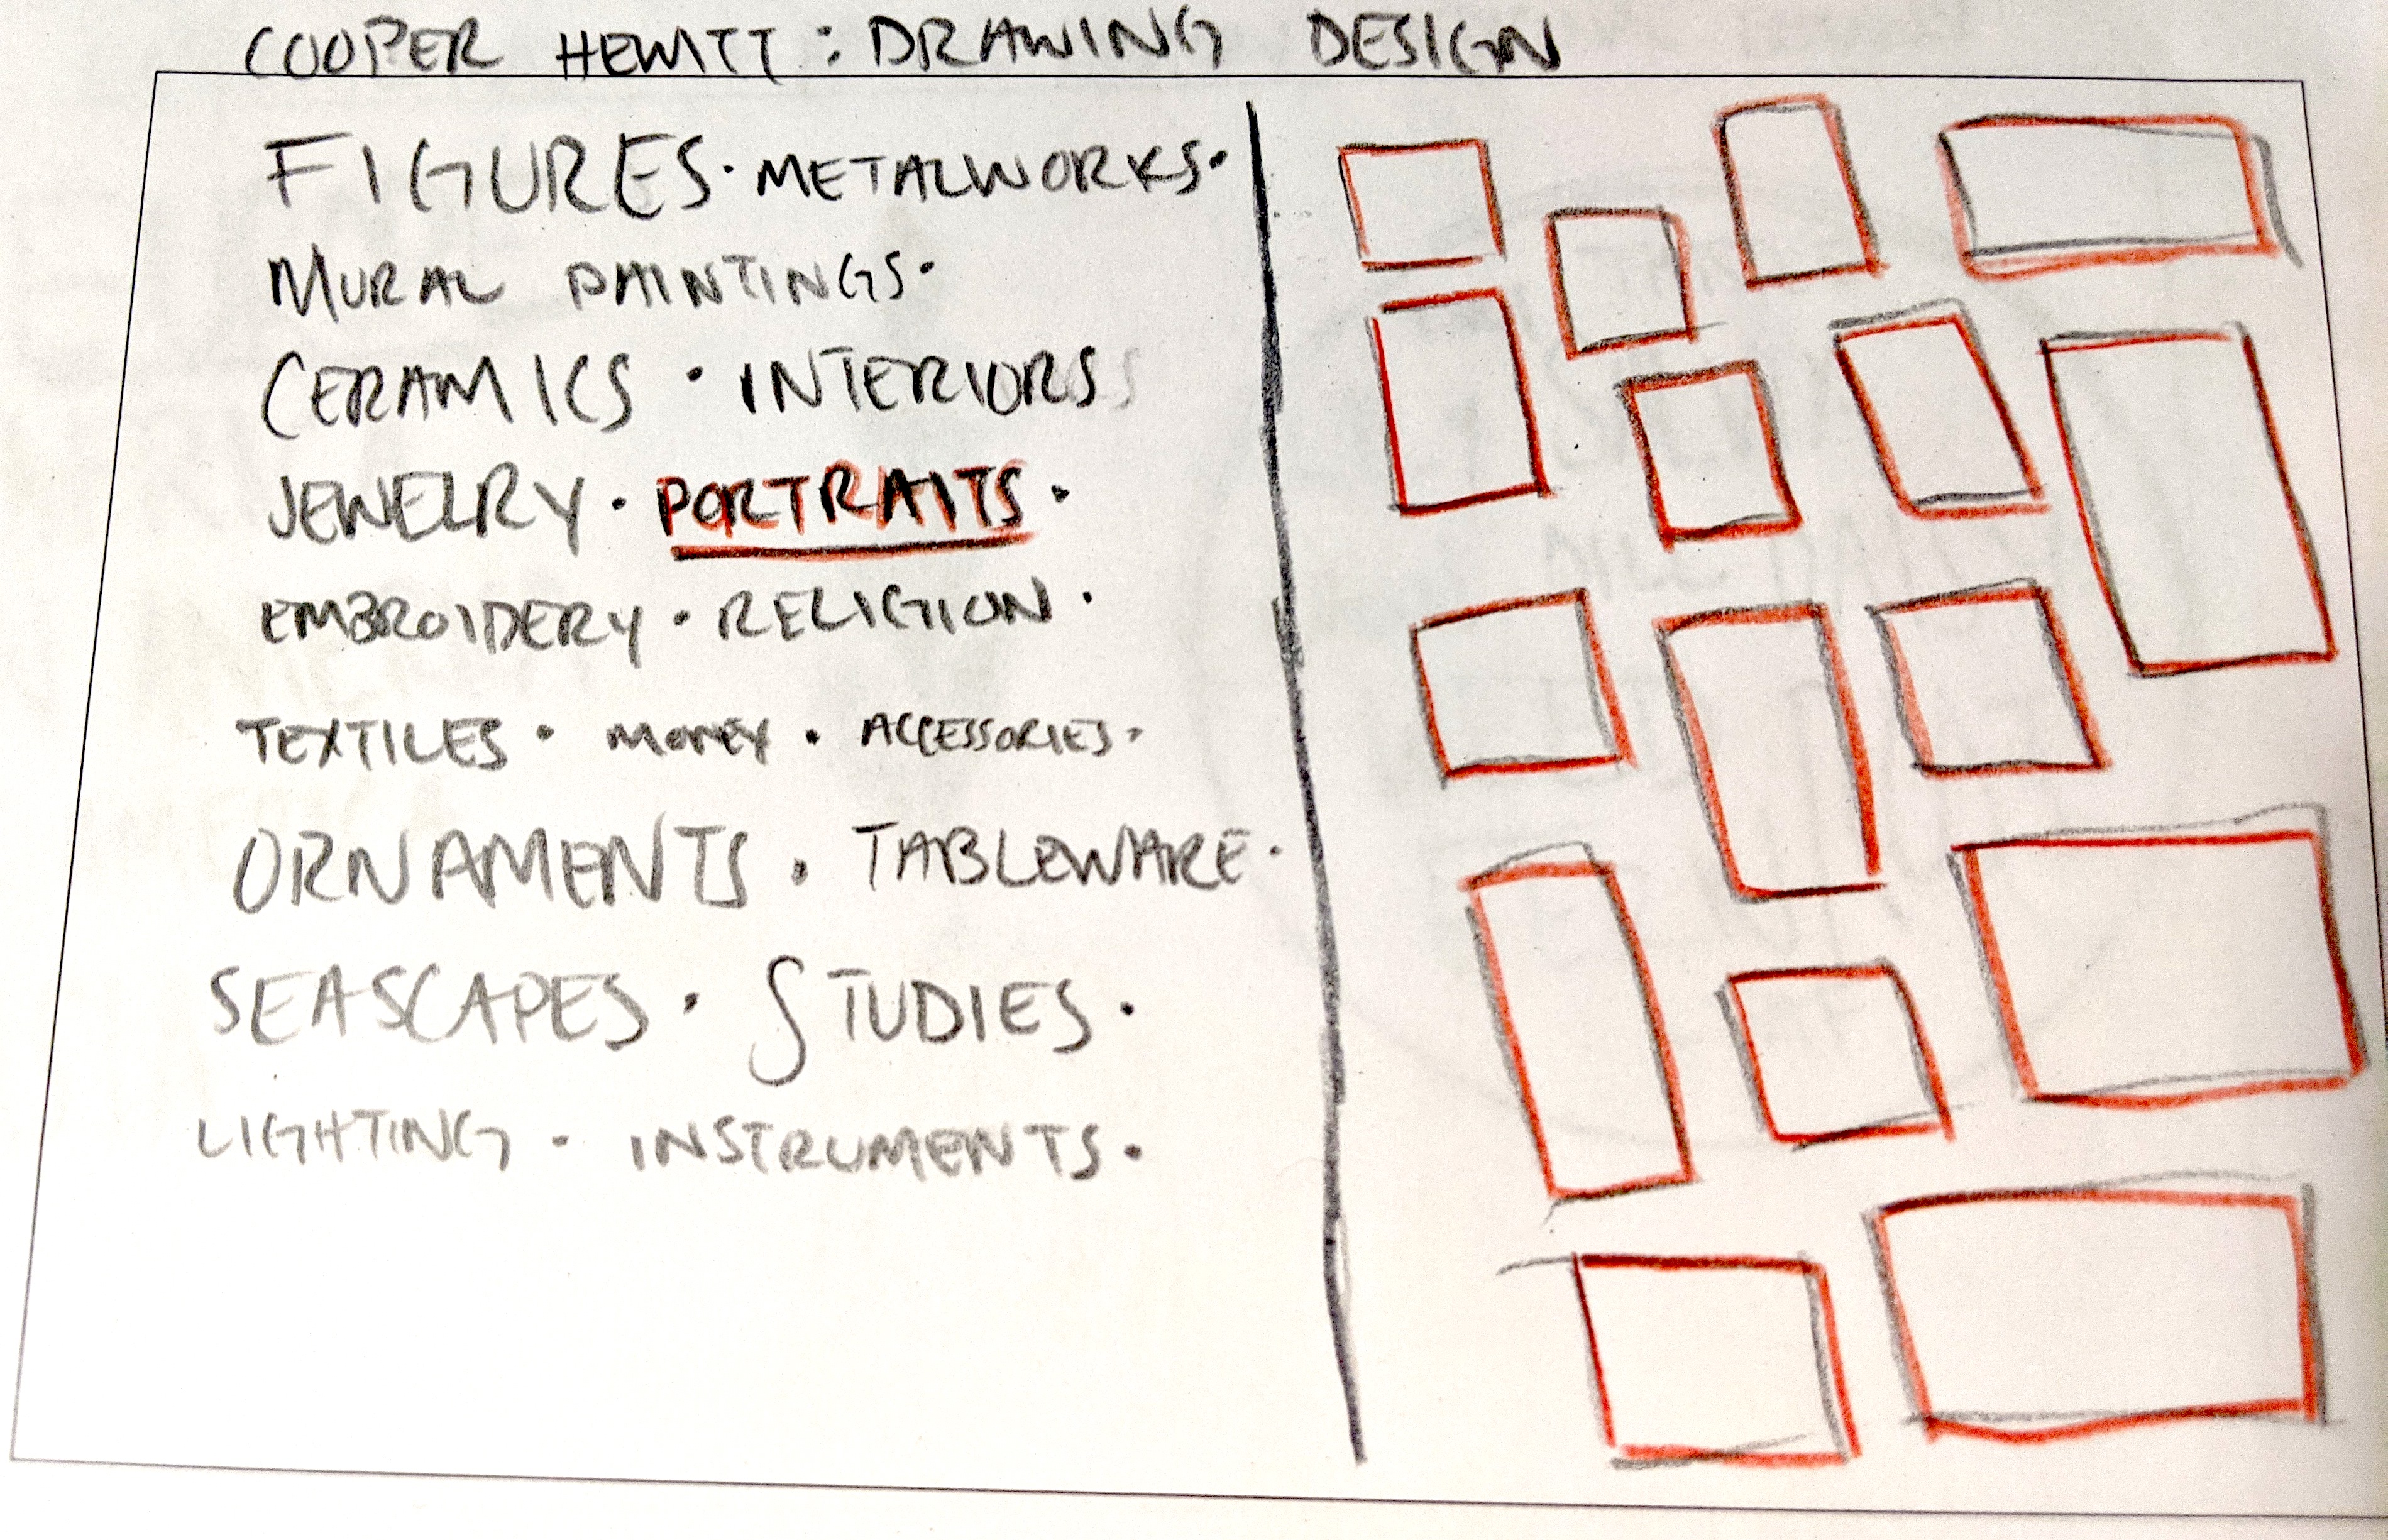 COOPER HEWITT : DRAWING DESIGN
FIGURES · METALWORKS ·
MURAL PAINTINGS ·
CERAMICS · INTERIORS
JEWELRY · PORTRAITS ·
EMBROIDERY · RELIGION ·
TEXTILES · MONEY · ACCESSORIES ·
ORNAMENTS · TABLEWARE ·
SEASCAPES · STUDIES ·
LIGHTING · INSTRUMENTS ·